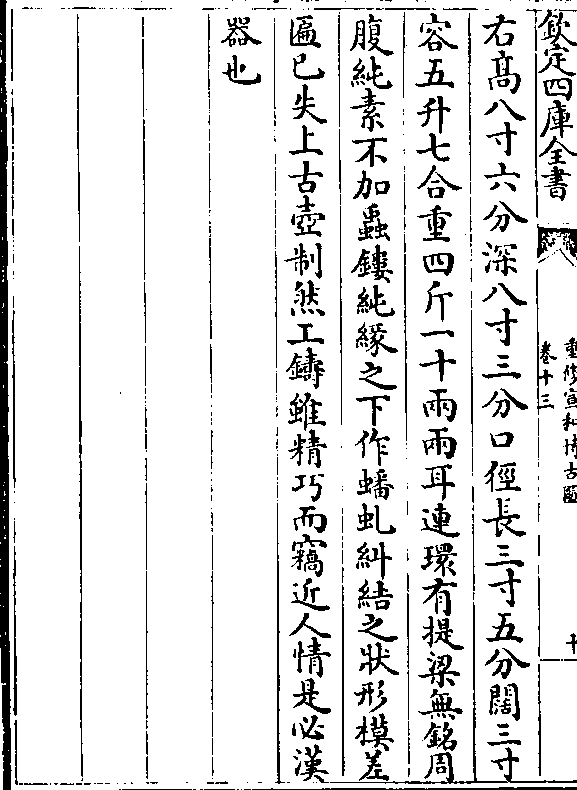 欽定四庫全書
重修宣和博古圖
卷十三
十
右髙八寸六分深八寸三分口徑長三寸五分闊三寸
容五升七合重四斤一十兩兩耳連環有提梁無銘周
腹純素不加蟲鏤純縁之下作蟠虬糾結之狀形模差
匾已失上古壺制然工鑄雖精巧而竊近人情是必漢
器也